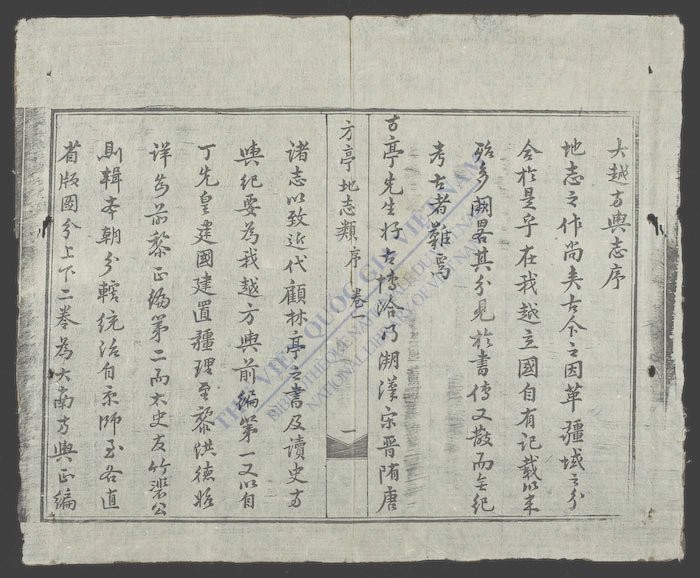 大越方輿志序
地志之作尚矣古今之因革疆域之分
合於是乎在我越立國自有記載以來
殆多闕畧其分見於書傳又散而無紀
考古者難焉
方亭地志類序 卷一
一
方亭先生好古博洽乃溯漢宋晋隋唐
諸志以致近代顧林亭之書及讀史方
輿紀要為我越方輿前編第一又以自
丁先皇建國建置疆理至黎洪德始
詳為前黎正編第二而太史友竹裴公
則輯本朝分轄統治自京師至各直
省版圖分上下二卷為大南方輿正編
THƯ VIỆN QUỐC GIA VIỆT NAM
BIBLIOTHÈQUE NATIONALE DU VIETNAM
NATIONAL LIBRARY OF VIETNAM